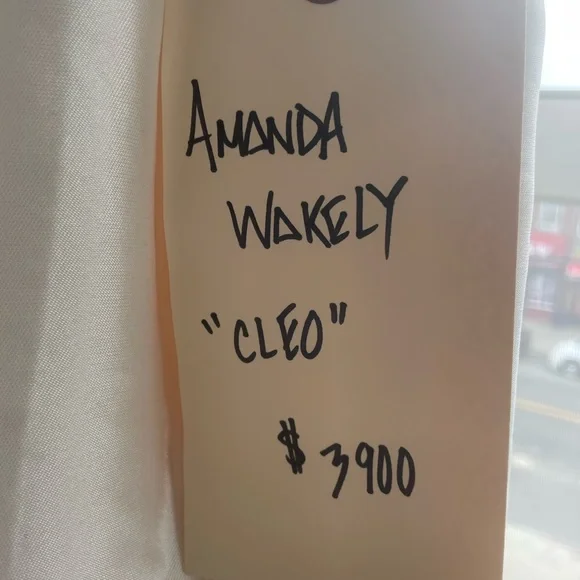 AMANDA
WAKELY
"CLEO"
$3900